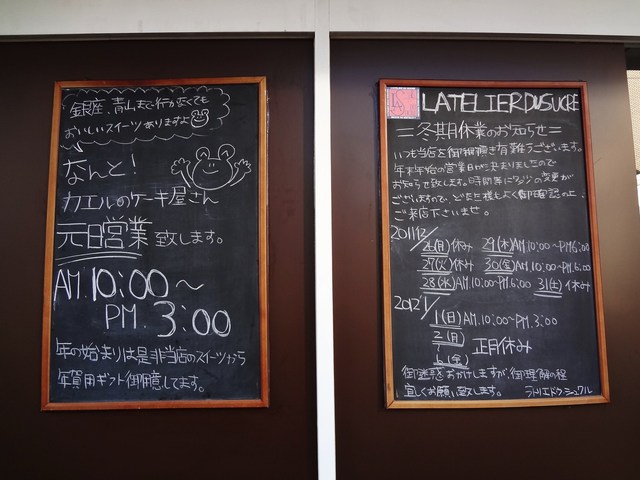 銀座、青山まで行かなくても
おいしいスイーツありますよ
なんと!
カエルのケーキ屋さん
元旦営業致します。
AM.10:00〜
PM.3:00
年の始まりは是非当店のスイーツから
年賀用ギフト御用意してます。
LATELIERDUSUCRE
=冬期休業のお知らせ=
いつも当店を御利用頂き有難うございます。
年末年始の営業日が決まりましたので
お知らせ致します。時間等に多少の変更が
ございますので、どなた様もよく御確認の上、
ご来店下さいませ。
2011 12/
(月)休み 29(木)AM.10:00〜PM.6:00
27(火)休み 30(金)AM.10:00〜PM.6:00
28(水)AM.10:00〜PM.6:00 31(土)休み
2012 1/
1(日)AM.10:00〜PM.3:00
2(月)
〜 正月休み
6(金)
御迷惑おかけしますが、御理解の程
宜しくお願い致します。 ラトリエドゥシュクル